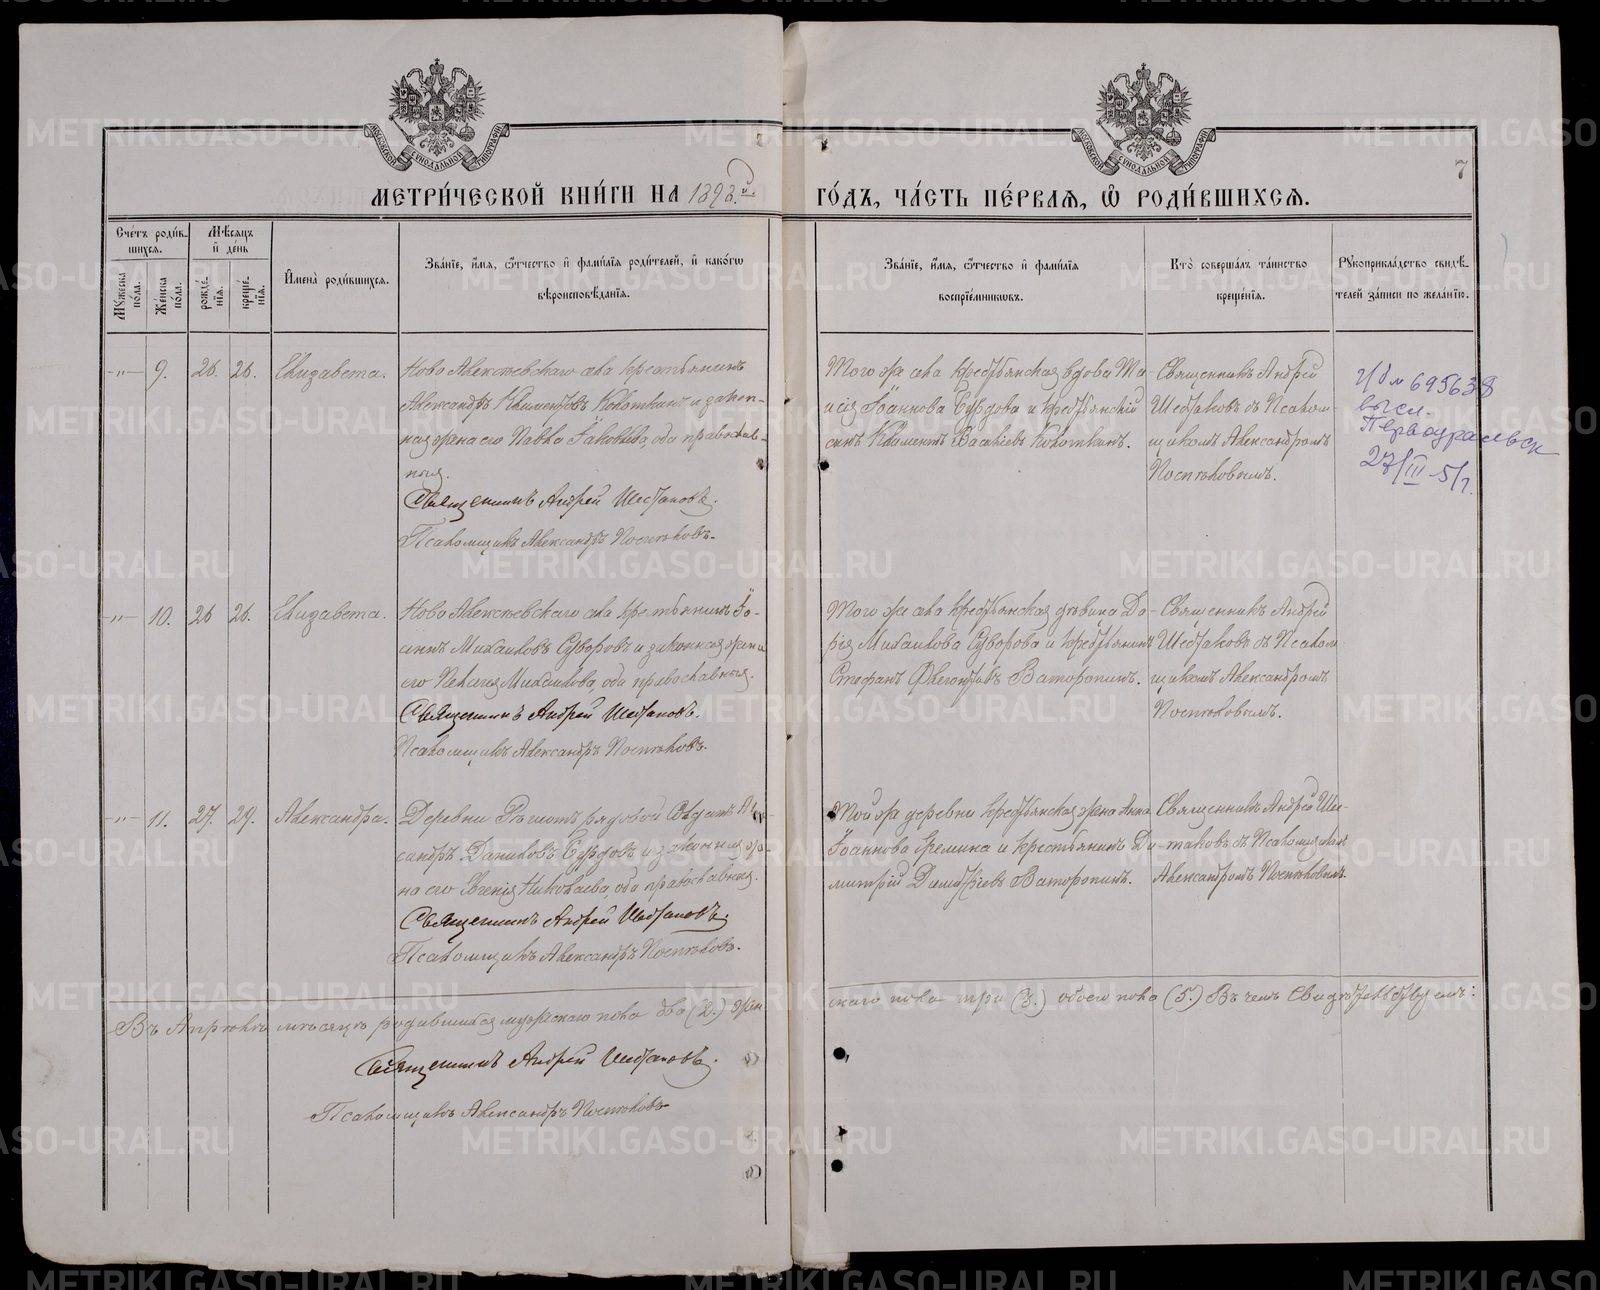 МЕТРИ́ЧЕСКОЙ КНИ́ГИ НА 1898й
ГО́ДЪ, ЧА́СТЬ ПЕ́РВАѦ, Ѡ РОДИ́ВШИХСѦ.
7
Сче́тъ роди́в-
шихся.
Мѣ́сяцъ
и де́нь
Му́жеска по́ла.
Же́нска по́ла.
рожде́нія.
креще́нія.
Имена̀ роди́вшихся.
Зва́ніе, и́мя, ѻ́тчество и фами́лія роди́телей, и како́гѡ
вѣроисповѣ́данія.
Зва́ніе, и́мя, ѻ́тчество и фами́лія
воспріе́мниковъ.
Кто̀ соверша́лъ та́инство
креще́нія.
Рукоприкла́дство свидѣ́-
телей за́писи по жела́нію.
-"- 9. 26. 26. Елизавета.
Ново Алексѣевскаго села крестьянинъ
Александръ Климентовъ Кокоткинъ и закон-
ная жена его Павла Іаковлева, оба православ-
ныя.
Священникъ Андрей Шестаковъ.
Псаломщикъ Александръ Поспѣловъ.
Того же села крестьянская вдова Та-
исія Іоаннова Бурдова и крестьянскій
сынъ Климентъ Васильевъ Кокоткинъ.
Священникъ Андрей
Шестаковъ съ Псалом-
щикомъ Александромъ
Поспѣловымъ.
695638
высл.
Первоуральск
27/III-51г.
-"- 10. 26 26. Елизавета.
Ново Алексѣевскаго села крестьянинъ Іо-
аннъ Михаиловъ Суворовъ и законная жена
его Пелагея Михаилова, оба православныя.
Священникъ Андрей Шестаковъ.
Псаломщикъ Александръ Поспѣловъ.
Того же села крестьянская дѣвица Да-
рія Михаилова Суворова и крестьянинъ
Стефанъ Флегонтовъ Ваторопинъ.
Священникъ Андрей
Шестаковъ съ Псалом-
щикомъ Александромъ
Поспѣловымъ.
-"- 11. 27. 29. Александра.
Деревни Рѣшетъ рядовой солдатъ Алек-
сандръ Даниловъ Бурдовъ и законная же-
на его Евгенія Николаева, оба православныя.
Священникъ Андрей Шестаковъ.
Псаломщикъ Александръ Поспѣловъ.
Той же деревни крестьянская жена Анна
Іоаннова Еремина и крестьянинъ Ди-
митрій Димитріевъ Ваторопинъ.
Священникъ Андрей Шес-
таковъ съ Псаломщикомъ
Александромъ Поспѣловымъ.
Въ Апрѣлѣ мѣсяцѣ родившихся мужескаго пола два (2.) жен
скаго пола три (3.) обоего пола (5.) Въ чемъ свидѣтельствуемъ:
Священникъ Андрей Шестаковъ.
Псаломщикъ Александръ Поспѣловъ